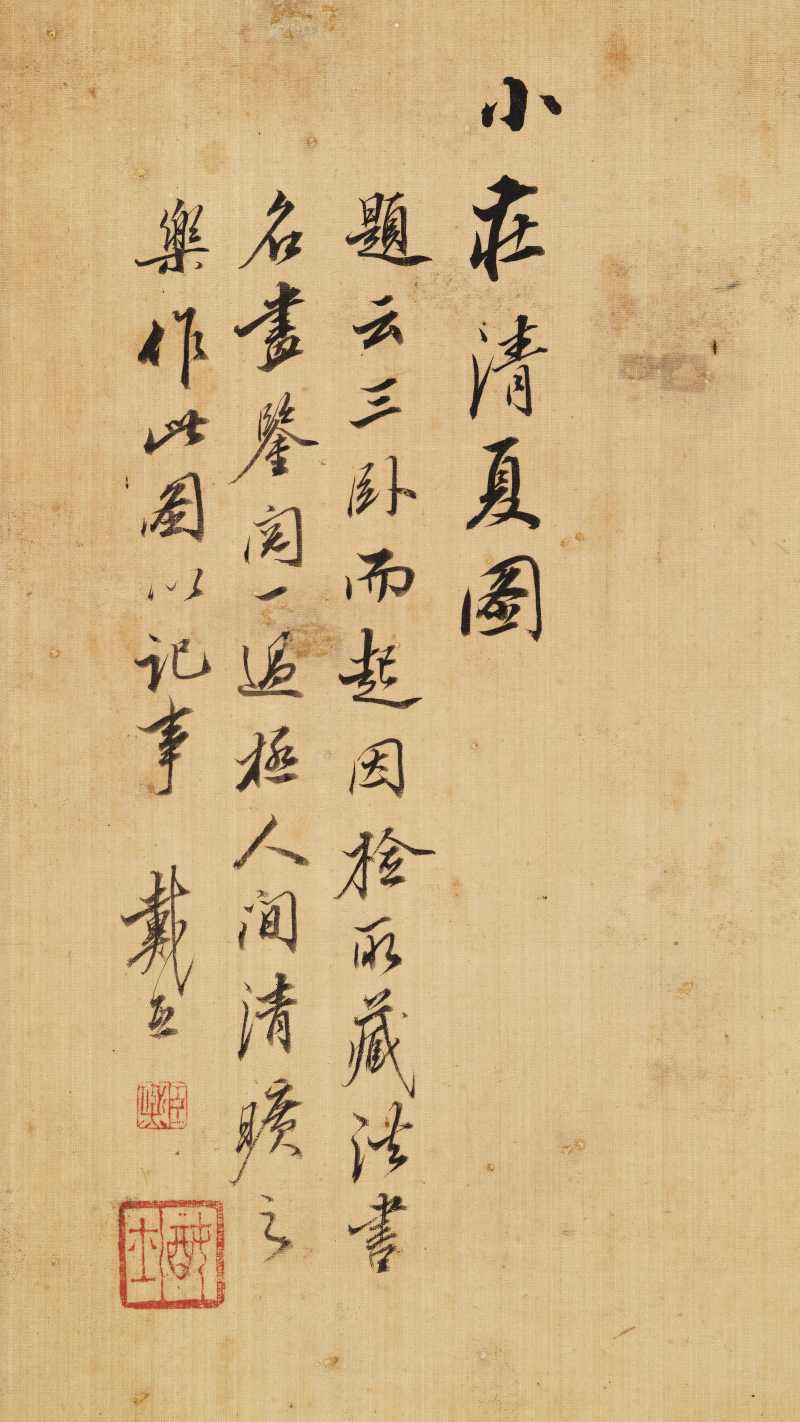 小庄清夏圖
題云三卧而起因檢所藏法書
名畫鑒閱一過極人間清曠之
樂作此圖以記事 戴
醇士